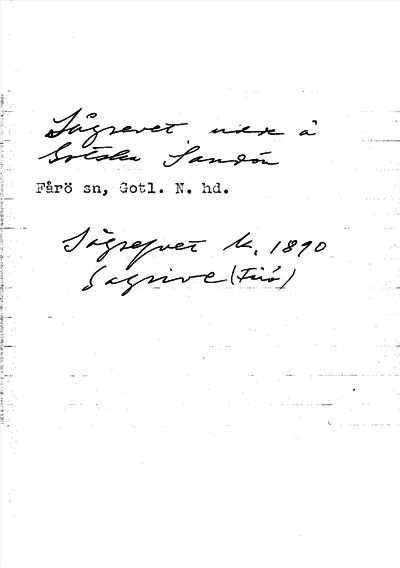 Sågrevet, udde å
Gotska Sandön
Fårö sn, Gotl. N. hd.
Sågrefvet k. 1890
Sagrive (Fårö)